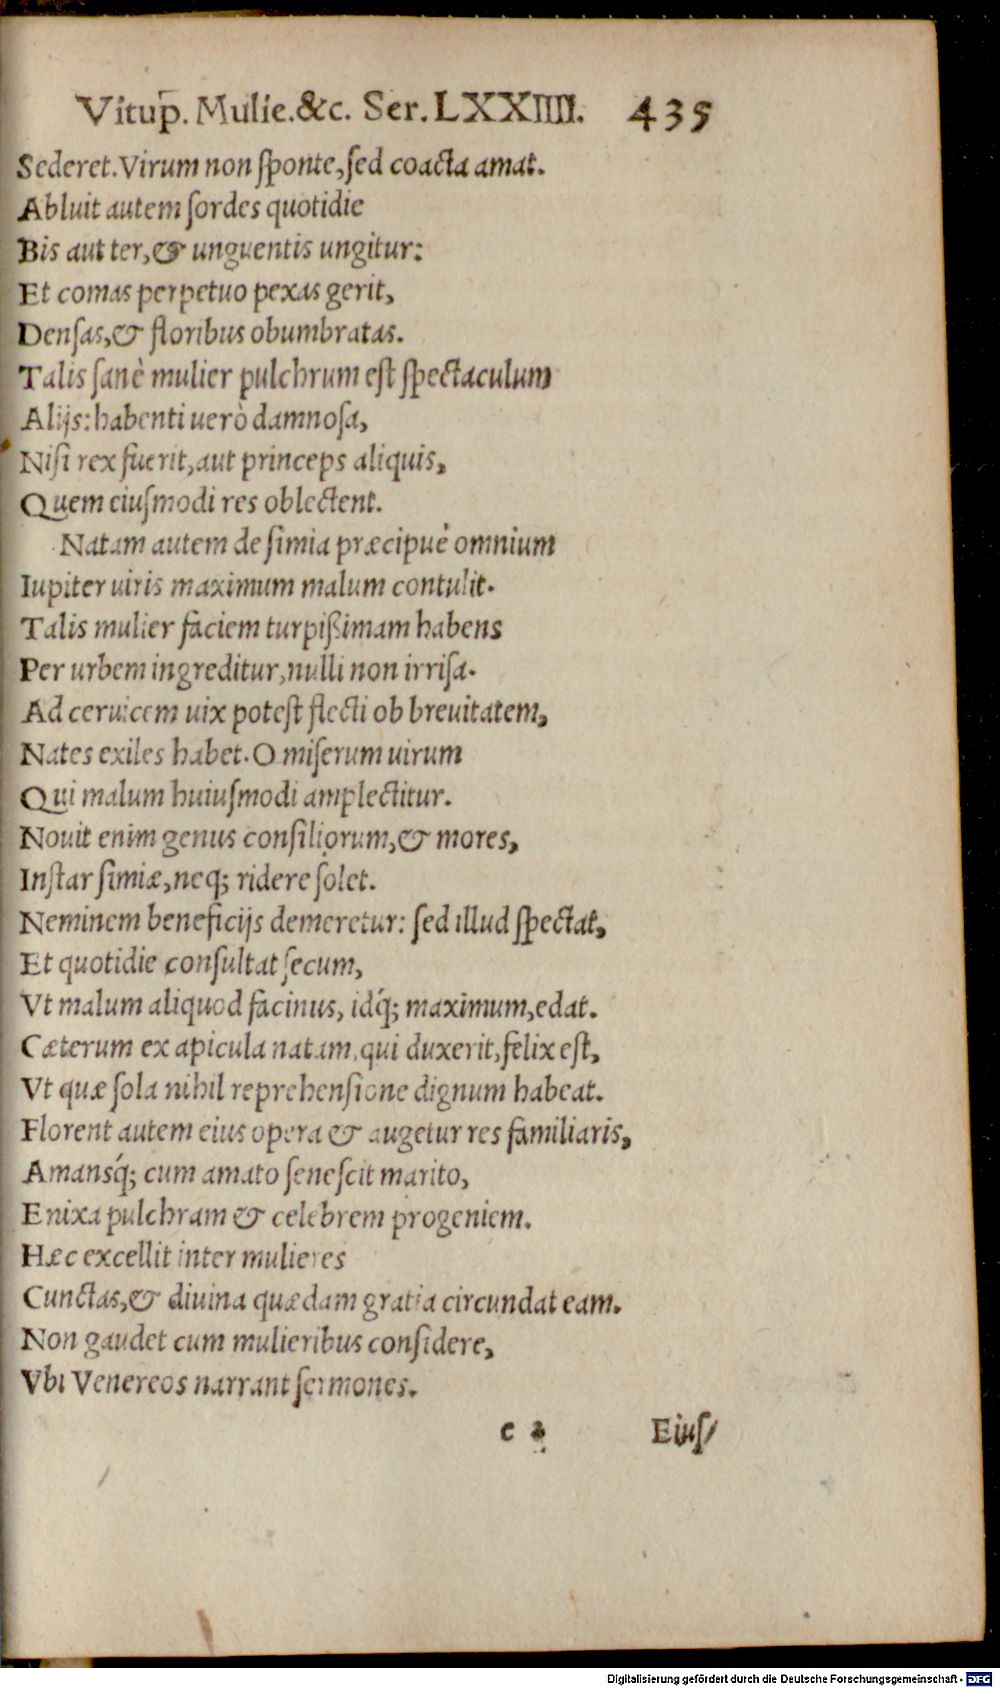 Vitup̄. Mulie.&c. Ser. LXXIIII. 435
Sederet. Virum non ſponte, ſed coacta amat.
Abluit autem ſordes quotidie
Bis aut ter, & unguentis ungitur:
Et comas perpetuo pexas gerit,
Denſas, & floribus obumbratas.
Talis ſanè mulier pulchrum eſt ſpectaculum
Alijs: habenti uerò damnoſa,
Niſi rex fuerit, aut princeps aliquis,
Quem eiuſmodi res oblectent.
Natam autem de ſimia præcipuè omnium
Iupiter uiris maximum malum contulit.
Talis mulier faciem turpißimam habens
Per urbem ingreditur, nulli non irriſa.
Ad ceruicem uix poteſt flecti ob breuitatem,
Nates exiles habet. O miſerum uirum
Qui malum huiuſmodi amplectitur.
Nouit enim genus conſiliorum, & mores,
Inſtar ſimiæ, neq; ridere ſolet.
Neminem beneficijs demeretur: ſed illud ſpectat,
Et quotidie conſultat ſecum,
Vt malum aliquod facinus, idq́; maximum, edat.
Cæterum ex apicula natam, qui duxerit, felix eſt,
Vt quæ ſola nihil reprehenſione dignum habeat.
Florent autem eius opera & augetur res familiaris,
Amansq́; cum amato ſeneſcit marito,
Enixa pulchram & celebrem progeniem.
Hæc excellit inter mulieres
Cunctas, & diuina quædam gratia circundat eam.
Non gaudet cum mulieribus conſidere,
Vbi Venereos narrant ſermones.
e 2 Eiuſ/
Digitalisierung gefördert durch die Deutsche Forschungsgemeinschaft - DFG